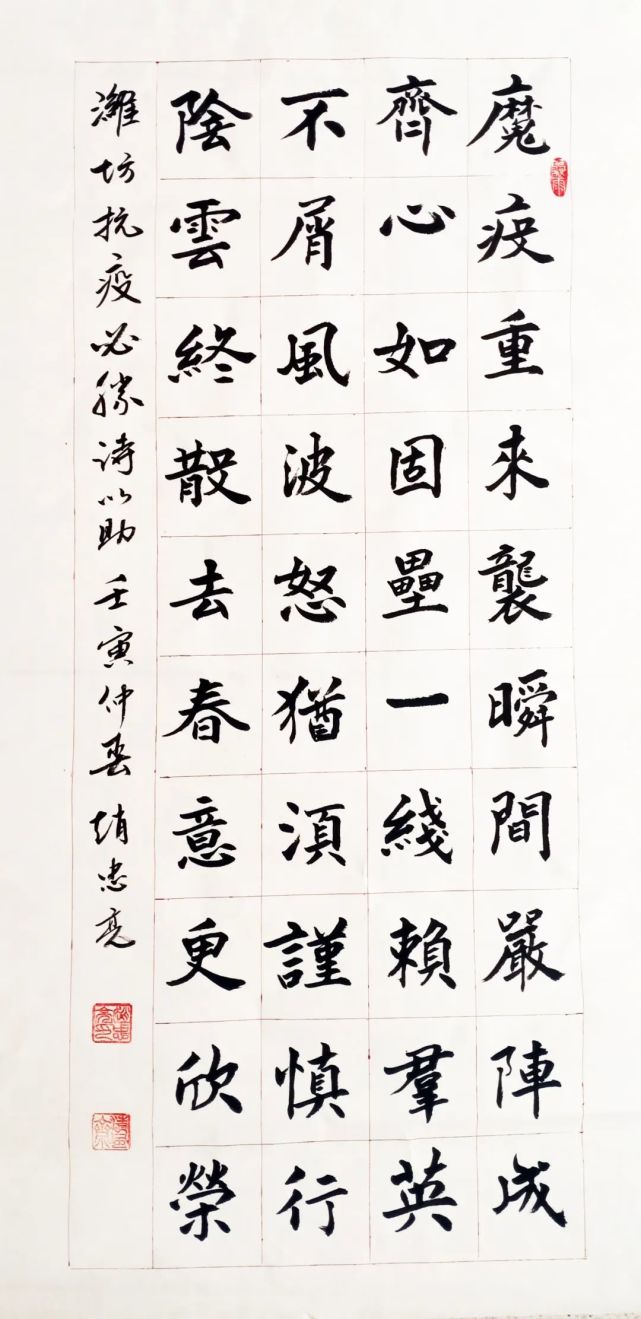 魔疫重來襲瞬間嚴陣成
齊心如固壘一綫賴羣英
不屑風波怒猶須謹慎行
陰雲終散去春意更欣榮
濰坊抗疫必勝詩以助 壬寅仲春 趙忠亮